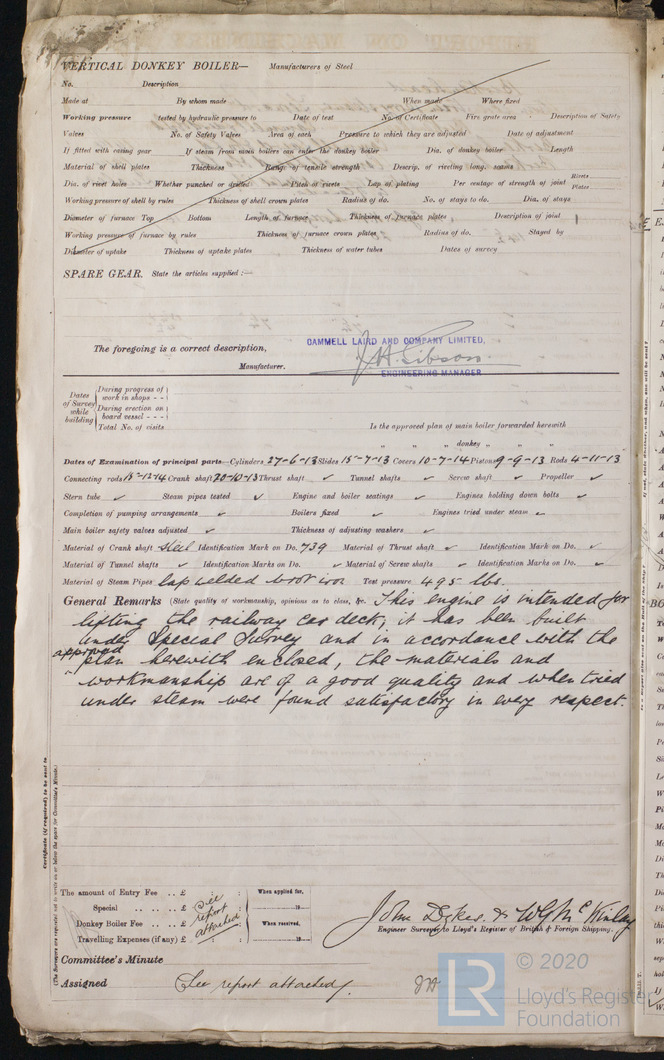 VERTICAL DONKEY BOILER— Manufacturers of Steel
No. Description
Made at By whom made When made Where fixed
Working pressure tested by hydraulic pressure to Date of test No. of Certificate Fire grate area Description of Safety
Valves No. of Safety Valves Area of each Pressure to which they are adjusted Date of adjustment
If fitted with easing gear If steam from main boilers can enter the donkey boiler Dia. of donkey boiler Length
Material of shell plates Thickness Range of tensile strength Descrip. of riveting long. seams
Dia. of rivet holes Whether punched or drilled Pitch of rivets Lap of plating Per centage of strength of joint Rivets Plates
Working pressure of shell by rules Thickness of shell crown plates Radius of do. No. of stays to do. Dia. of stays
Diameter of furnace Top Bottom Length of furnace Thickness of furnace plates Description of joint
Working pressure of furnace by rules Thickness of furnace crown plates Radius of do. Stayed by
Diameter of uptake Thickness of uptake plates Thickness of water tubes Dates of survey
SPARE GEAR. State the articles supplied :—
The foregoing is a correct description,
CAMMELL LAIRD AND COMPANY LIMITED.
J.H. Gibson
Manufacturer.
ENGINEERING MANAGER
Dates of Survey while building
During progress of work in shops - -
During erection on board vessel - - -
Total No. of visits
Is the approved plan of main boiler forwarded herewith
" " " donkey " " "
Dates of Examination of principal parts—Cylinders 27-6-13 Slides 15-7-13 Covers 10-7-14 Pistons 9-9-13 Rods 4-11-13
Connecting rods 15-12-14 Crank shaft 20-10-13 Thrust shaft ✓ Tunnel shafts ✓ Screw shaft ✓ Propeller ✓
Stern tube ✓ Steam pipes tested ✓ Engine and boiler seatings ✓ Engines holding down bolts ✓
Completion of pumping arrangements ✓ Boilers fixed ✓ Engines tried under steam ✓
Main boiler safety valves adjusted ✓ Thickness of adjusting washers ✓
Material of Crank shaft Steel Identification Mark on Do. 739 Material of Thrust shaft ✓ Identification Mark on Do. ✓
Material of Tunnel shafts ✓ Identification Marks on Do. ✓ Material of Screw shafts ✓ Identification Marks on Do. ✓
Material of Steam Pipes lap welded wrot iron Test pressure 495 lbs.
General Remarks (State quality of workmanship, opinions as to class, &c. This engine is intended for
lifting the railway car deck, it has been built
under Special Survey and in accordance with the
approved
plan herewith enclosed, the materials and
workmanship are of a good quality and when tried
under steam were found satisfactory in every respect.
Certificate (if required) to be sent to
(The Surveyors are requested not to write on or below the space for Committee's Minute.)
The amount of Entry Fee .. £ : : When applied for,
Special .. .. .. .. £ See 19
Donkey Boiler Fee .. .. £ report When received,
Travelling Expenses (if any) £ attached 19
John Dykes & W G Mc Kinlay
Engineer Surveyor to Lloyd's Register of British & Foreign Shipping.
Committee's Minute
Assigned See report attached
LR
© 2020
Lloyd's Register
Foundation